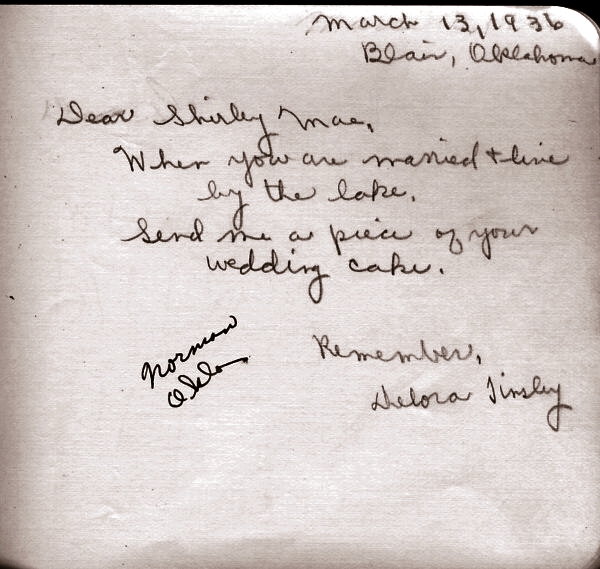 March 13, 1936
Blair, Oklahoma
Dear Shirley Mae,
When you are married + live
by the lake.
Send me a piece of your
wedding cake.
Norman
Okla
Remember,
Delora Tinsley